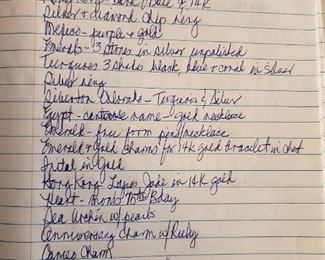 Hong Kong - Dark & Pale Jade 14K
Silver & diamond chip ring
Mexico - purple & gold
Emerald - 3 stones in silver unpolished
Turquoise 3 shades black, blue & coral in Silver
Silver ring
Silverton Colorado - Turquois & Silver
Egypt - cartouse name - gold necklace
Emerald - free form pin/necklace
Emerald & gold charms for 14K gold bracelet in chest
Initial in Gold
Hong Kong - Lapis Jade in 14K gold
Heart - Mom's 75th Bday
Sea Urchin w/pearls
Anniversary charm w/Ruby
Cameo Charm